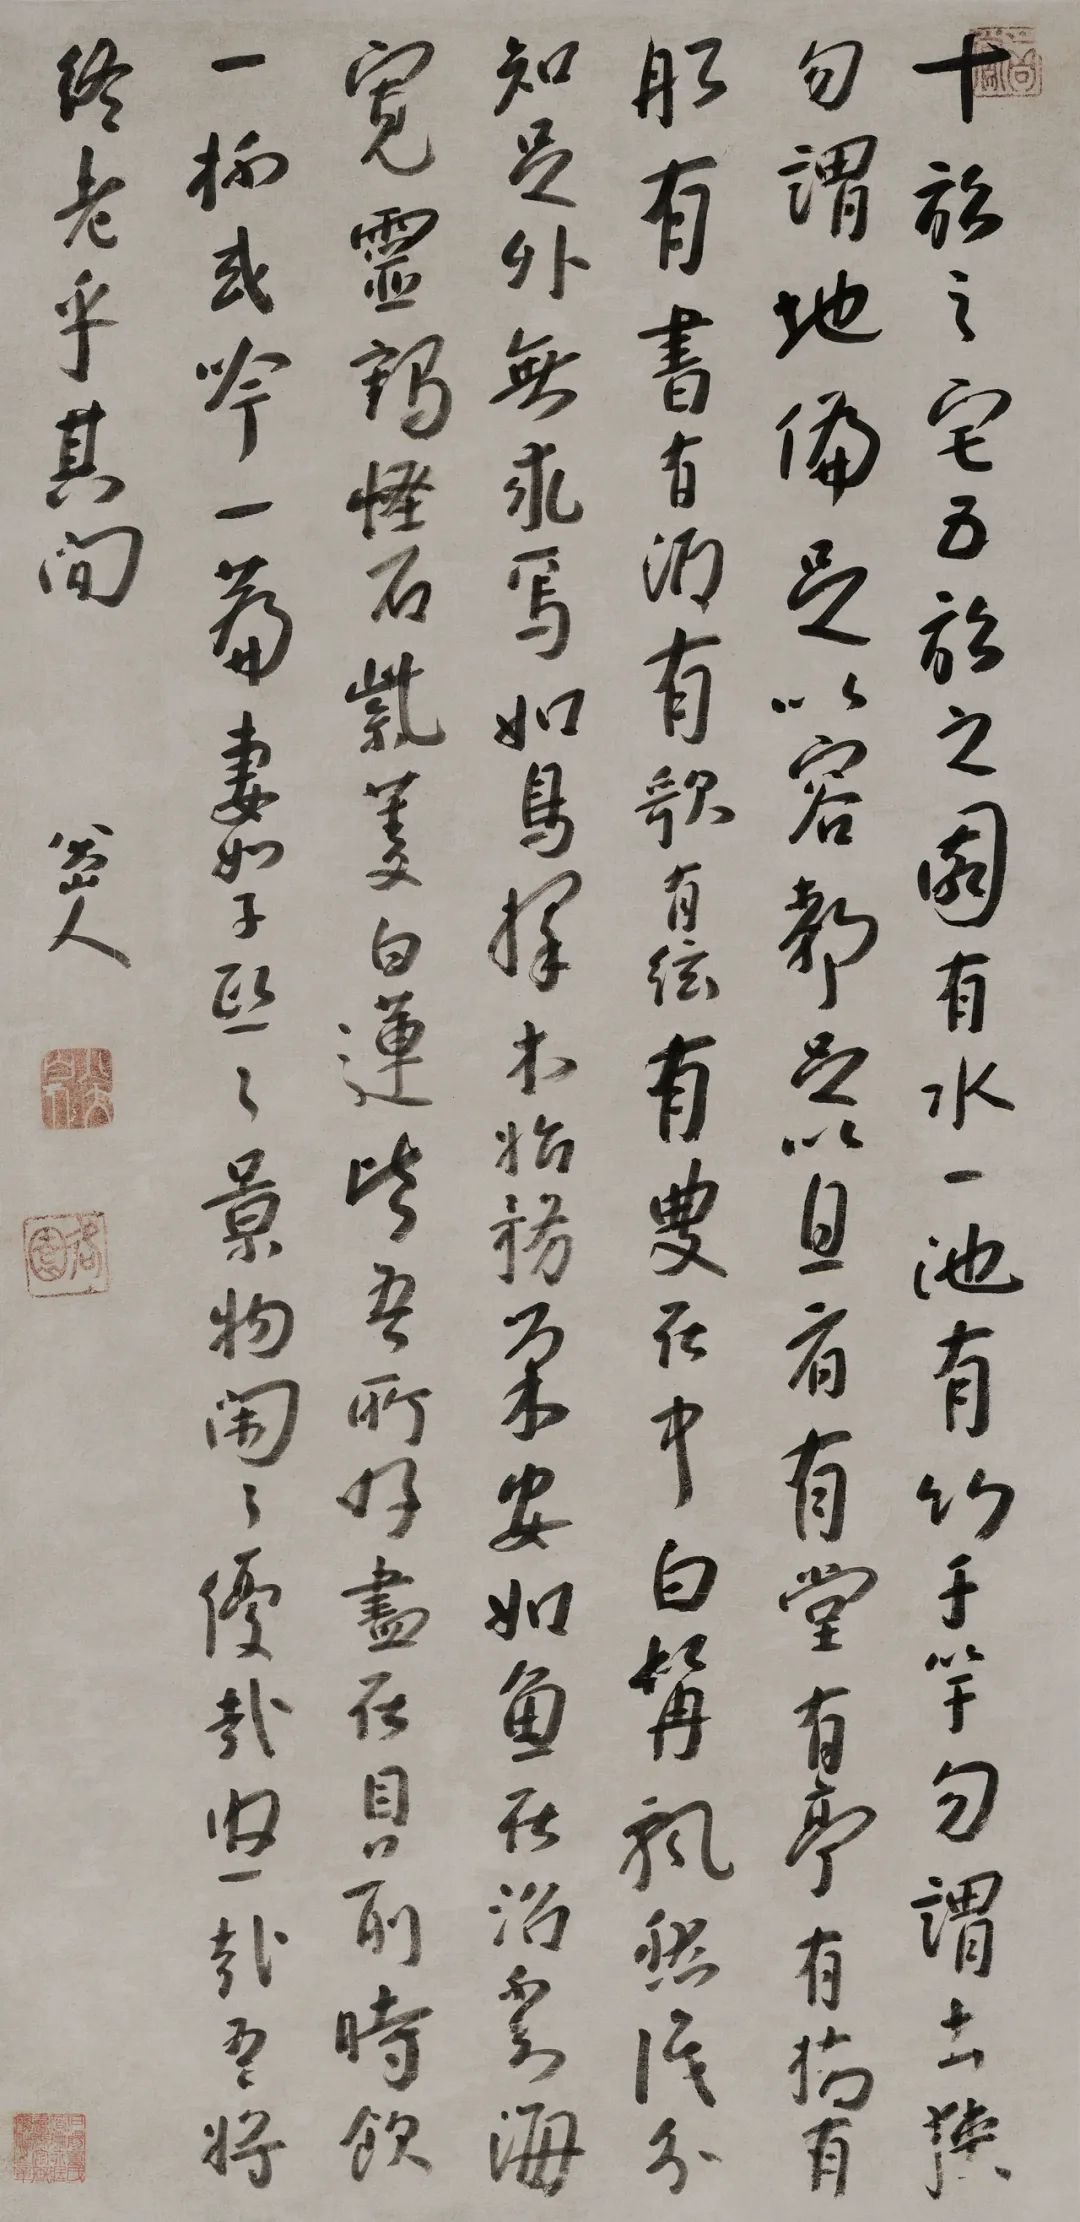 十畝之宅五畝之園有水一池有竹千竿勿謂土狹
勿謂地偏足以容都足以息肩有堂有亭有橋有
船有書有酒有歌有絃有叟在中白髯飄然識分
知足外無求焉如鳥擇木姑務巢安如魚在沼不知海
寬靈鶴怪石紫菱白蓮皆吾所好盡在目前時飲
一杯或吟一篇妻如子熙〻景物閑〻優哉遊哉吾將
終老乎其間
八大山人